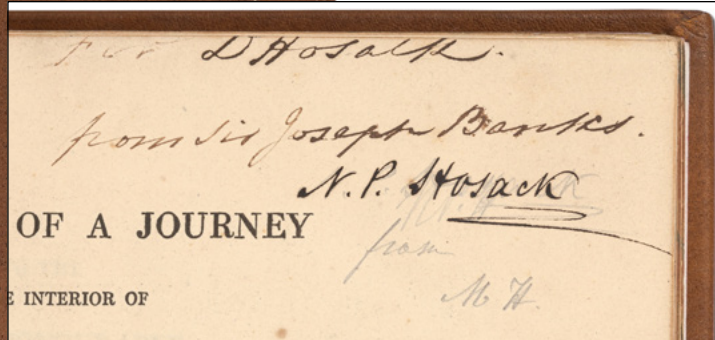 For D Hosack.
from Sir Joseph Banks.
N. P. Hosack
OF A JOURNEY
from
E INTERIOR OF
M H.